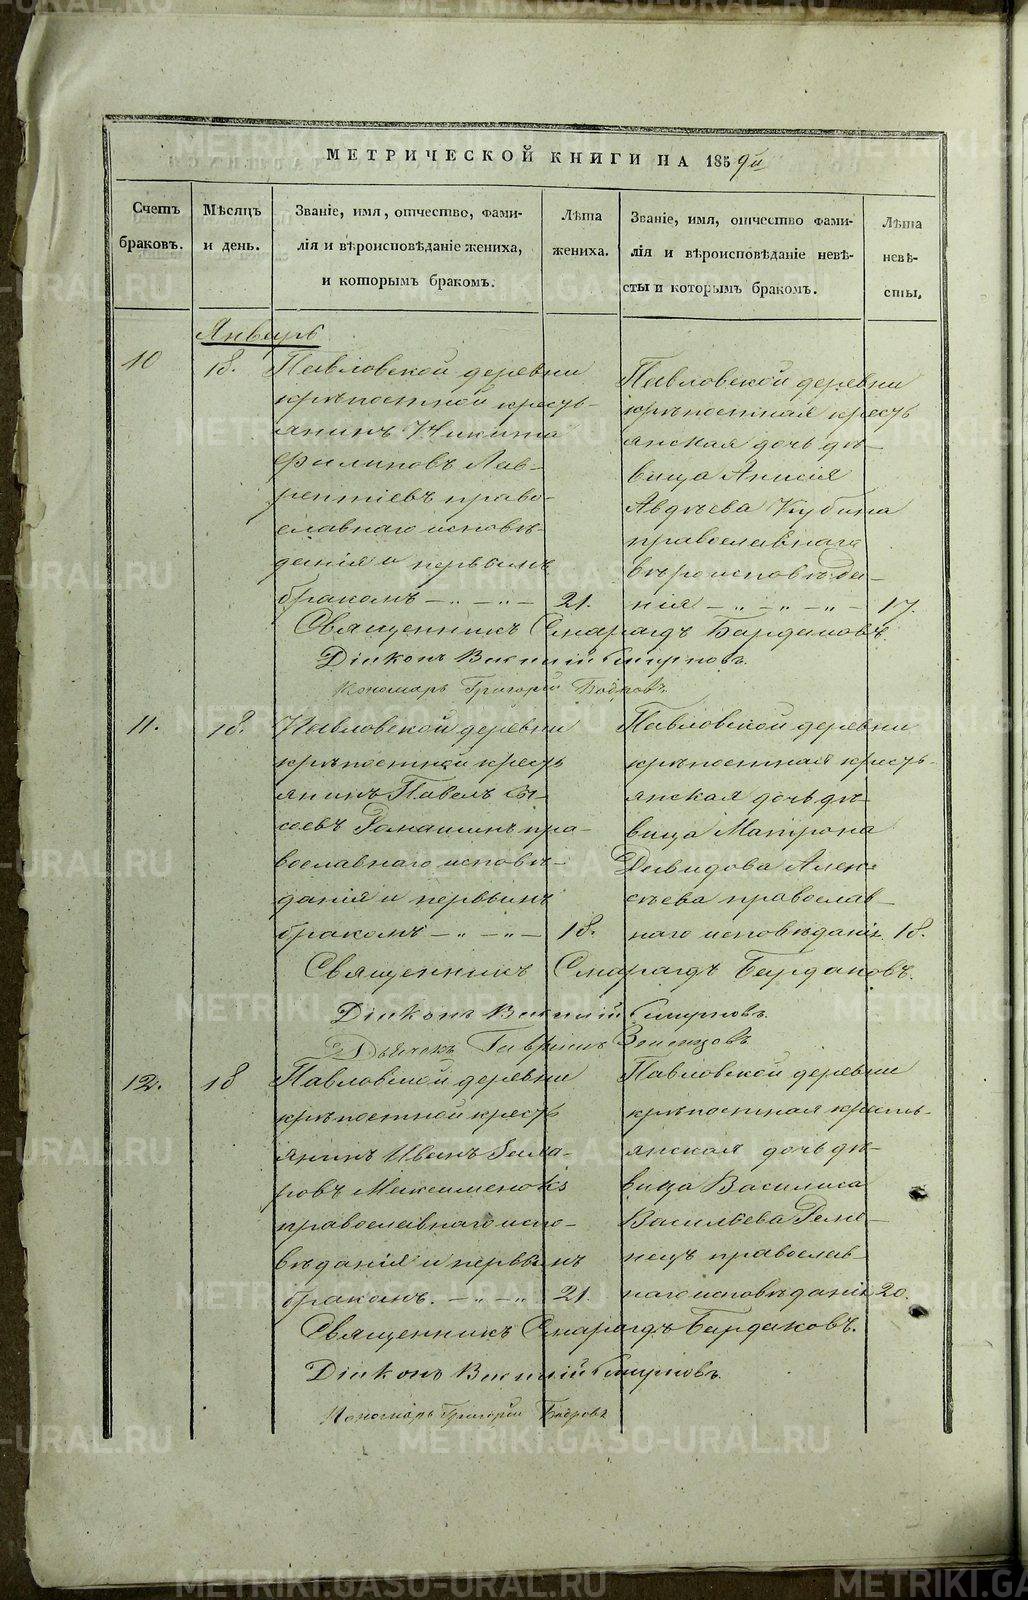 МЕТРИЧЕСКОЙ КНИГИ НА 1859й
Счетъ браковъ.
Мѣсяцъ и день.
Званіе, имя, отчество, фами-
лія и вѣроисповѣданіе жениха,
и которымъ бракомъ.
Лѣта жениха.
Званіе, имя, отчество фами-
лія и вѣроисповѣданіе невѣ-
сты и которымъ бракомъ.
Лѣта
невѣ-
сты,
Январь
10
18.
Павловской деревни
крѣпостной кресть-
янинъ Никита
Филиповъ Лав-
рентіевъ право-
славнаго исповѣ-
данія и первымъ
бракомъ — „ — „ —
21.
Павловской деревни
крѣпостная кресть
янская дочь дѣ-
вица Анисія
Авдѣева Кубина
православнаго
вѣроисповѣда-
нія — „ — „ —
17.
Священникъ Смарагдъ Бардаковъ.
Діаконъ Василій Смирновъ.
Пономарь Григорій
11.
18.
Павловской деревни
крѣпостной кресть
янинъ Павелъ Сы-
соевъ Ромашинъ пра-
вославнаго исповѣ-
данія и первымъ
бракомъ — „ — „ —
18.
Павловской деревни
крѣпостная кресть-
янская дочь дѣ-
вица Матрона
Давидова Алек-
сѣева православ-
наго исповѣданія.
18.
Священникъ Смарагдъ Бардаковъ.
Діаконъ Василій Смирновъ.
Дьячекъ Гавріилъ
12.
18
Павловской деревни
крѣпостной кресть
янинъ Иванъ
Максименокъ
православнаго испо-
вѣданія и первымъ
бракомъ. — „ — „
21.
Павловской деревни
крѣпостная кресть-
янская дочь дѣ-
вица Василиса
Васильева Реме-
нецъ православ-
наго исповѣданія
20.
Священникъ Смарагдъ Бардаковъ.
Діаконъ Василій Смирновъ.
Пономарь Григорій
METRIKI.GASO-URAL.RU